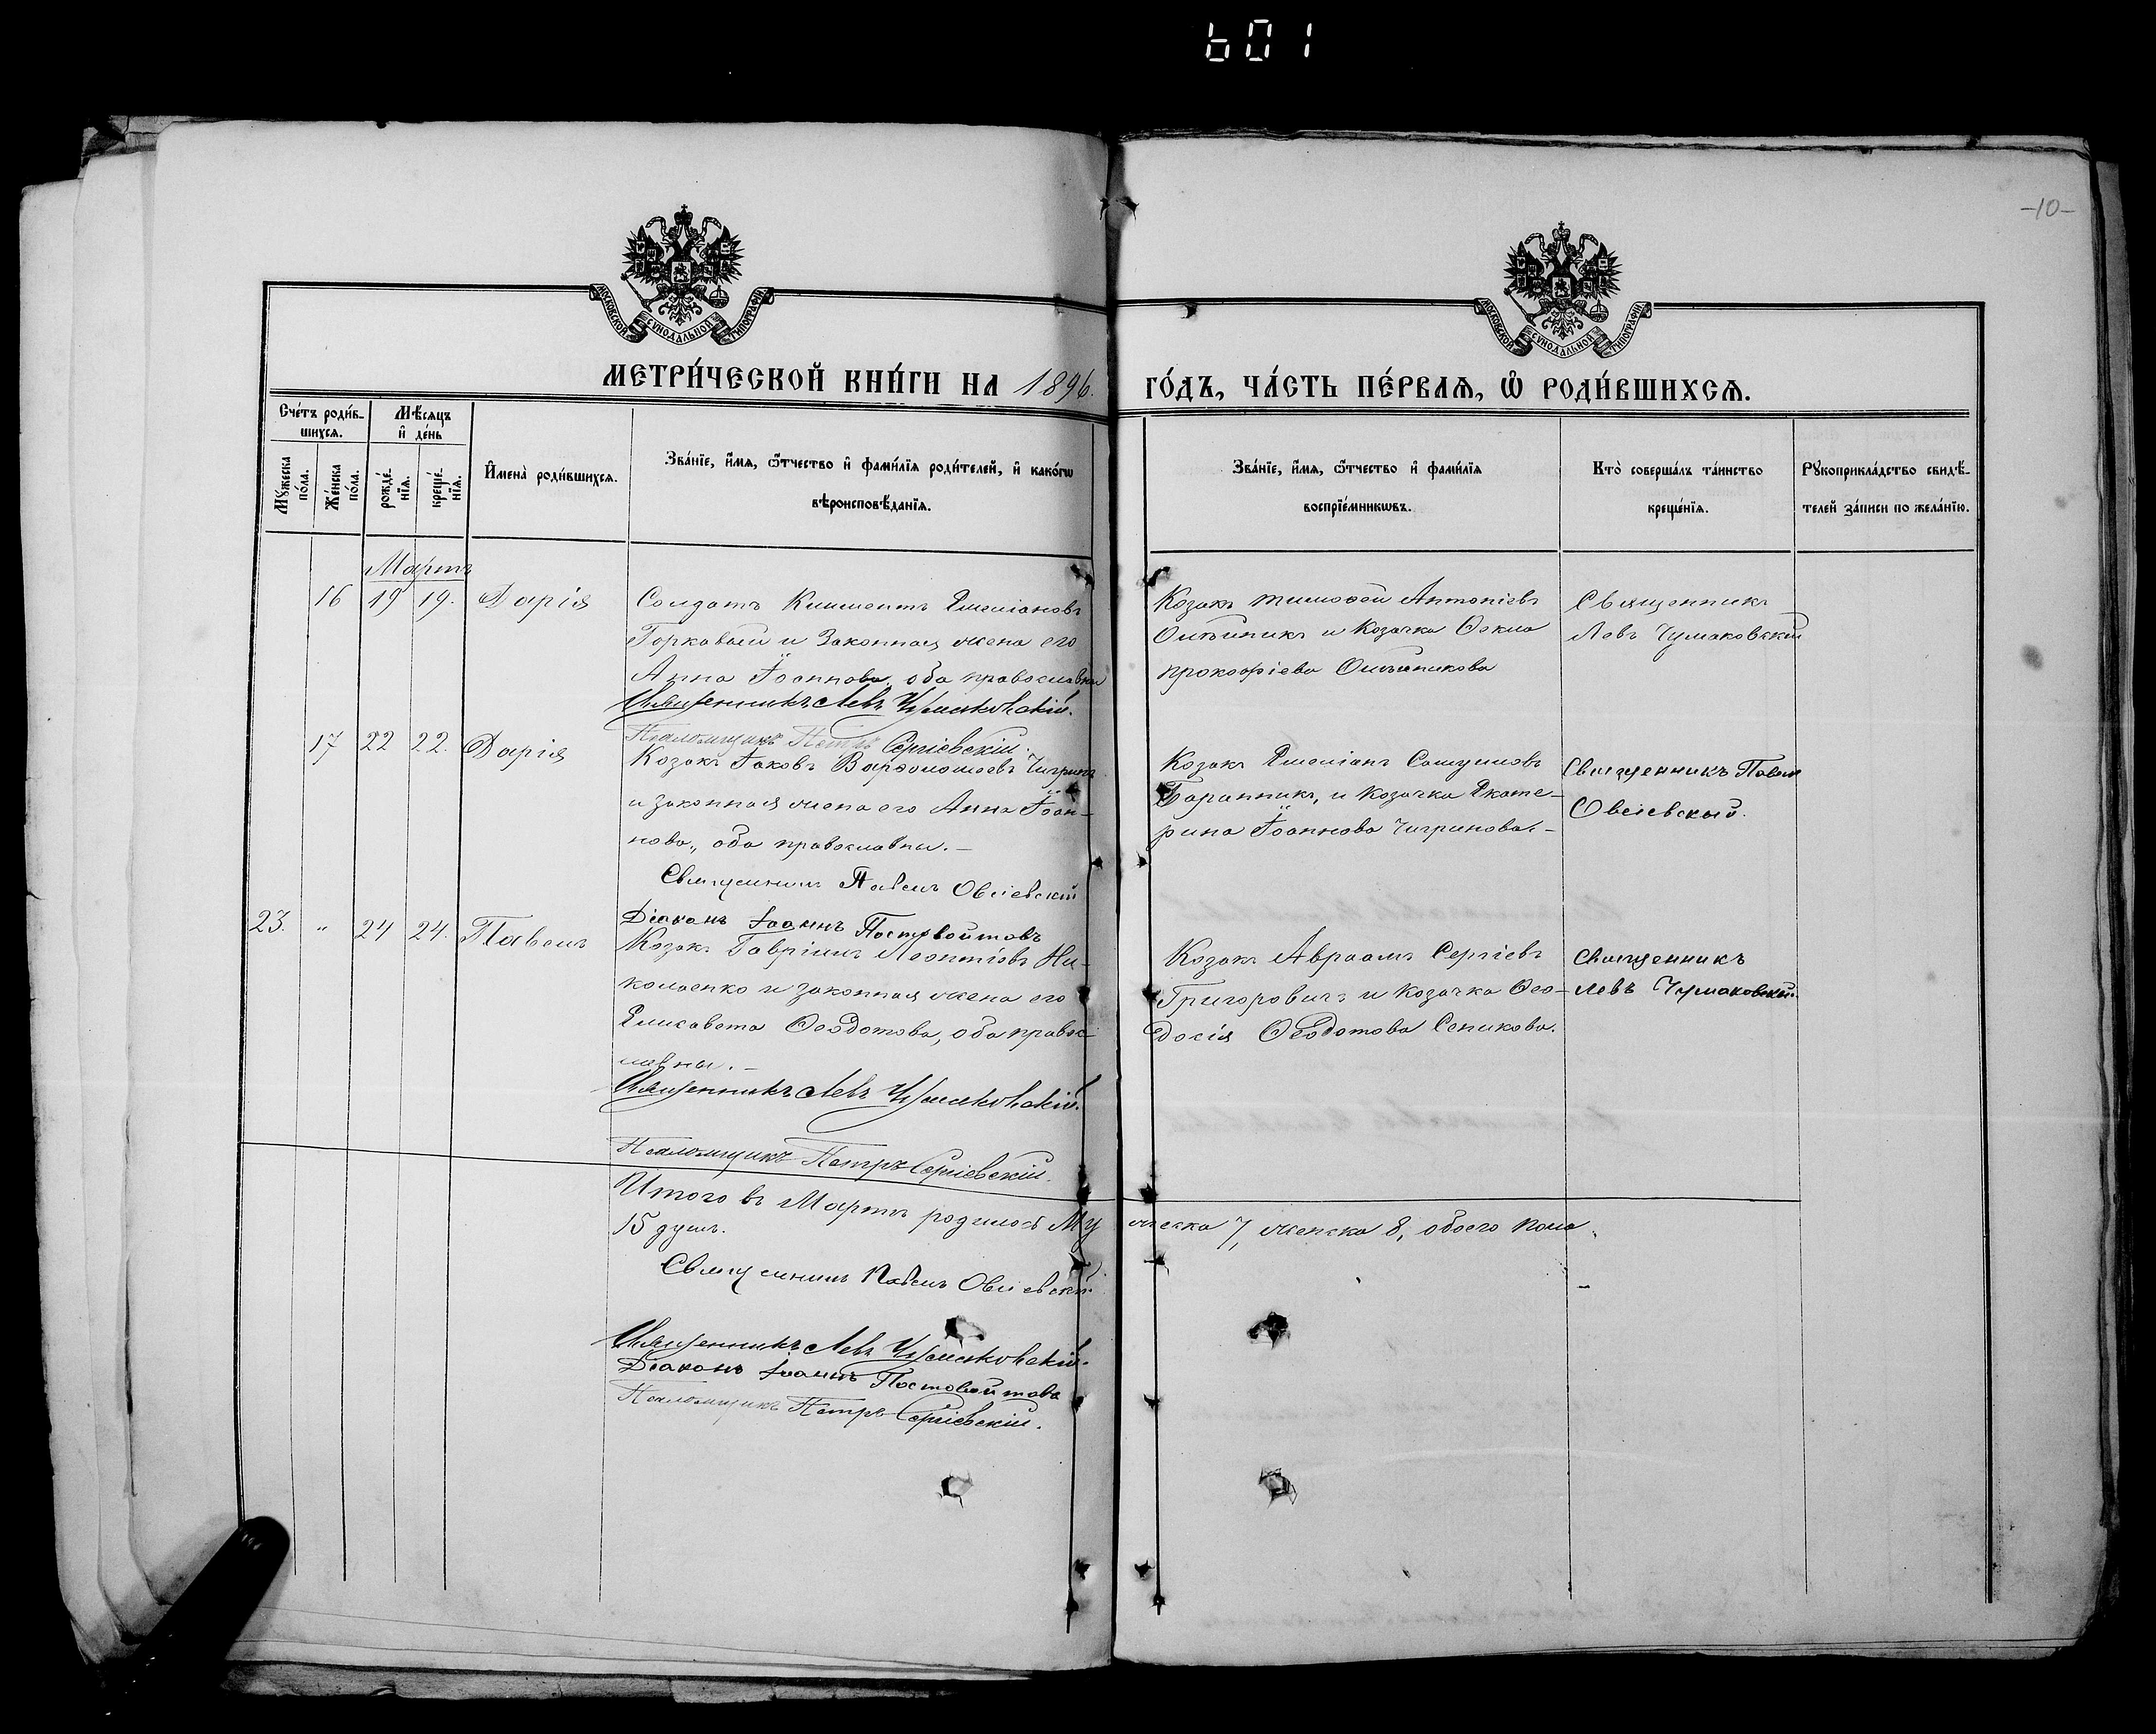 601
-10-
МОСКОВСКОЙ СѴНОДАЛЬНОЙ ТИПОГРАФІИ
МОСКОВСКОЙ СѴНОДАЛЬНОЙ ТИПОГРАФІИ
МЕТРИ́ЧЕСКОЙ КНИ́ГИ НА 1896.
ГО́ДЪ, ЧА́СТЬ ПЕ́РВАѦ, Ѡ҆ РОДИ́ВШИХСѦ.
Сче́тъ роди́в-
шихсѧ.
Мѣ́сѧцъ
и҆ де́нь
Мꙋ́жеска
по́ла.
Же́нска
по́ла.
рожде́-
нїѧ.
креще́-
нїѧ.
И҆мена̀ роди́вшихсѧ.
Зва́нїе, и҆́мѧ, ѻ҆́тчество и҆ фами́лїѧ роди́телей, и҆ како́гѡ
вѣроисповѣ́данїѧ.
Зва́нїе, и҆́мѧ, ѻ҆́тчество и҆ фами́лїѧ
воспрїе́мникѡвъ.
Кто̀ соверша́лъ та́инство
креще́нїѧ.
Рꙋкоприкла́дство свидѣ́-
телей за́писи по жела́нїю.
Мартъ
16 19 19. Дарія
Солдатъ Климентъ Емеліановъ
Горкавый и Законная жена его
Анна Іоаннова, оба православны
Священникъ Левъ Чумаковскій.
Псаломщикъ Петръ Сергіевскій.
Козакъ Тимофей Антоніевъ
и Козачка Ѳекла
Прокофіева
Священникъ
Левъ Чумаковскій
17 22 22. Дарія
Козакъ Іаковъ Варѳоломеевъ Чигринъ
и законная жена его Анна Іоан-
нова, оба православны.-
Священникъ Павелъ Овсіевскій
Діаконъ Іоаннъ Постовойтовъ
Козакъ Емеліанъ Самуиловъ
Баранникъ, и козачка Екате-
рина Іоаннова Чигринова.-
Священникъ Павелъ
Овсіевскій.
23. " 24 24. Павелъ
Козакъ Гавріилъ Леонтіевъ Ни-
колаенко и законная жена его
Елисавета Ѳеодотова, оба правос-
лавны.-
Священникъ Левъ Чумаковскій.
Псаломщикъ Петръ Сергіевскій.
Козакъ Авраамъ Сергіевъ
Григоровичъ и козачка Ѳео-
досія Ѳеодотова Сеникова.
Священникъ
Левъ Чумаковскій.
Итого въ Мартѣ родилось Му жеска 7, женска 8, обоего пола
15 душъ.
Священникъ Павелъ Овсіевскій
Священникъ Левъ Чумаковскій.
Діаконъ Іоаннъ Постовойтовъ
Псаломщикъ Петръ Сергіевскій.